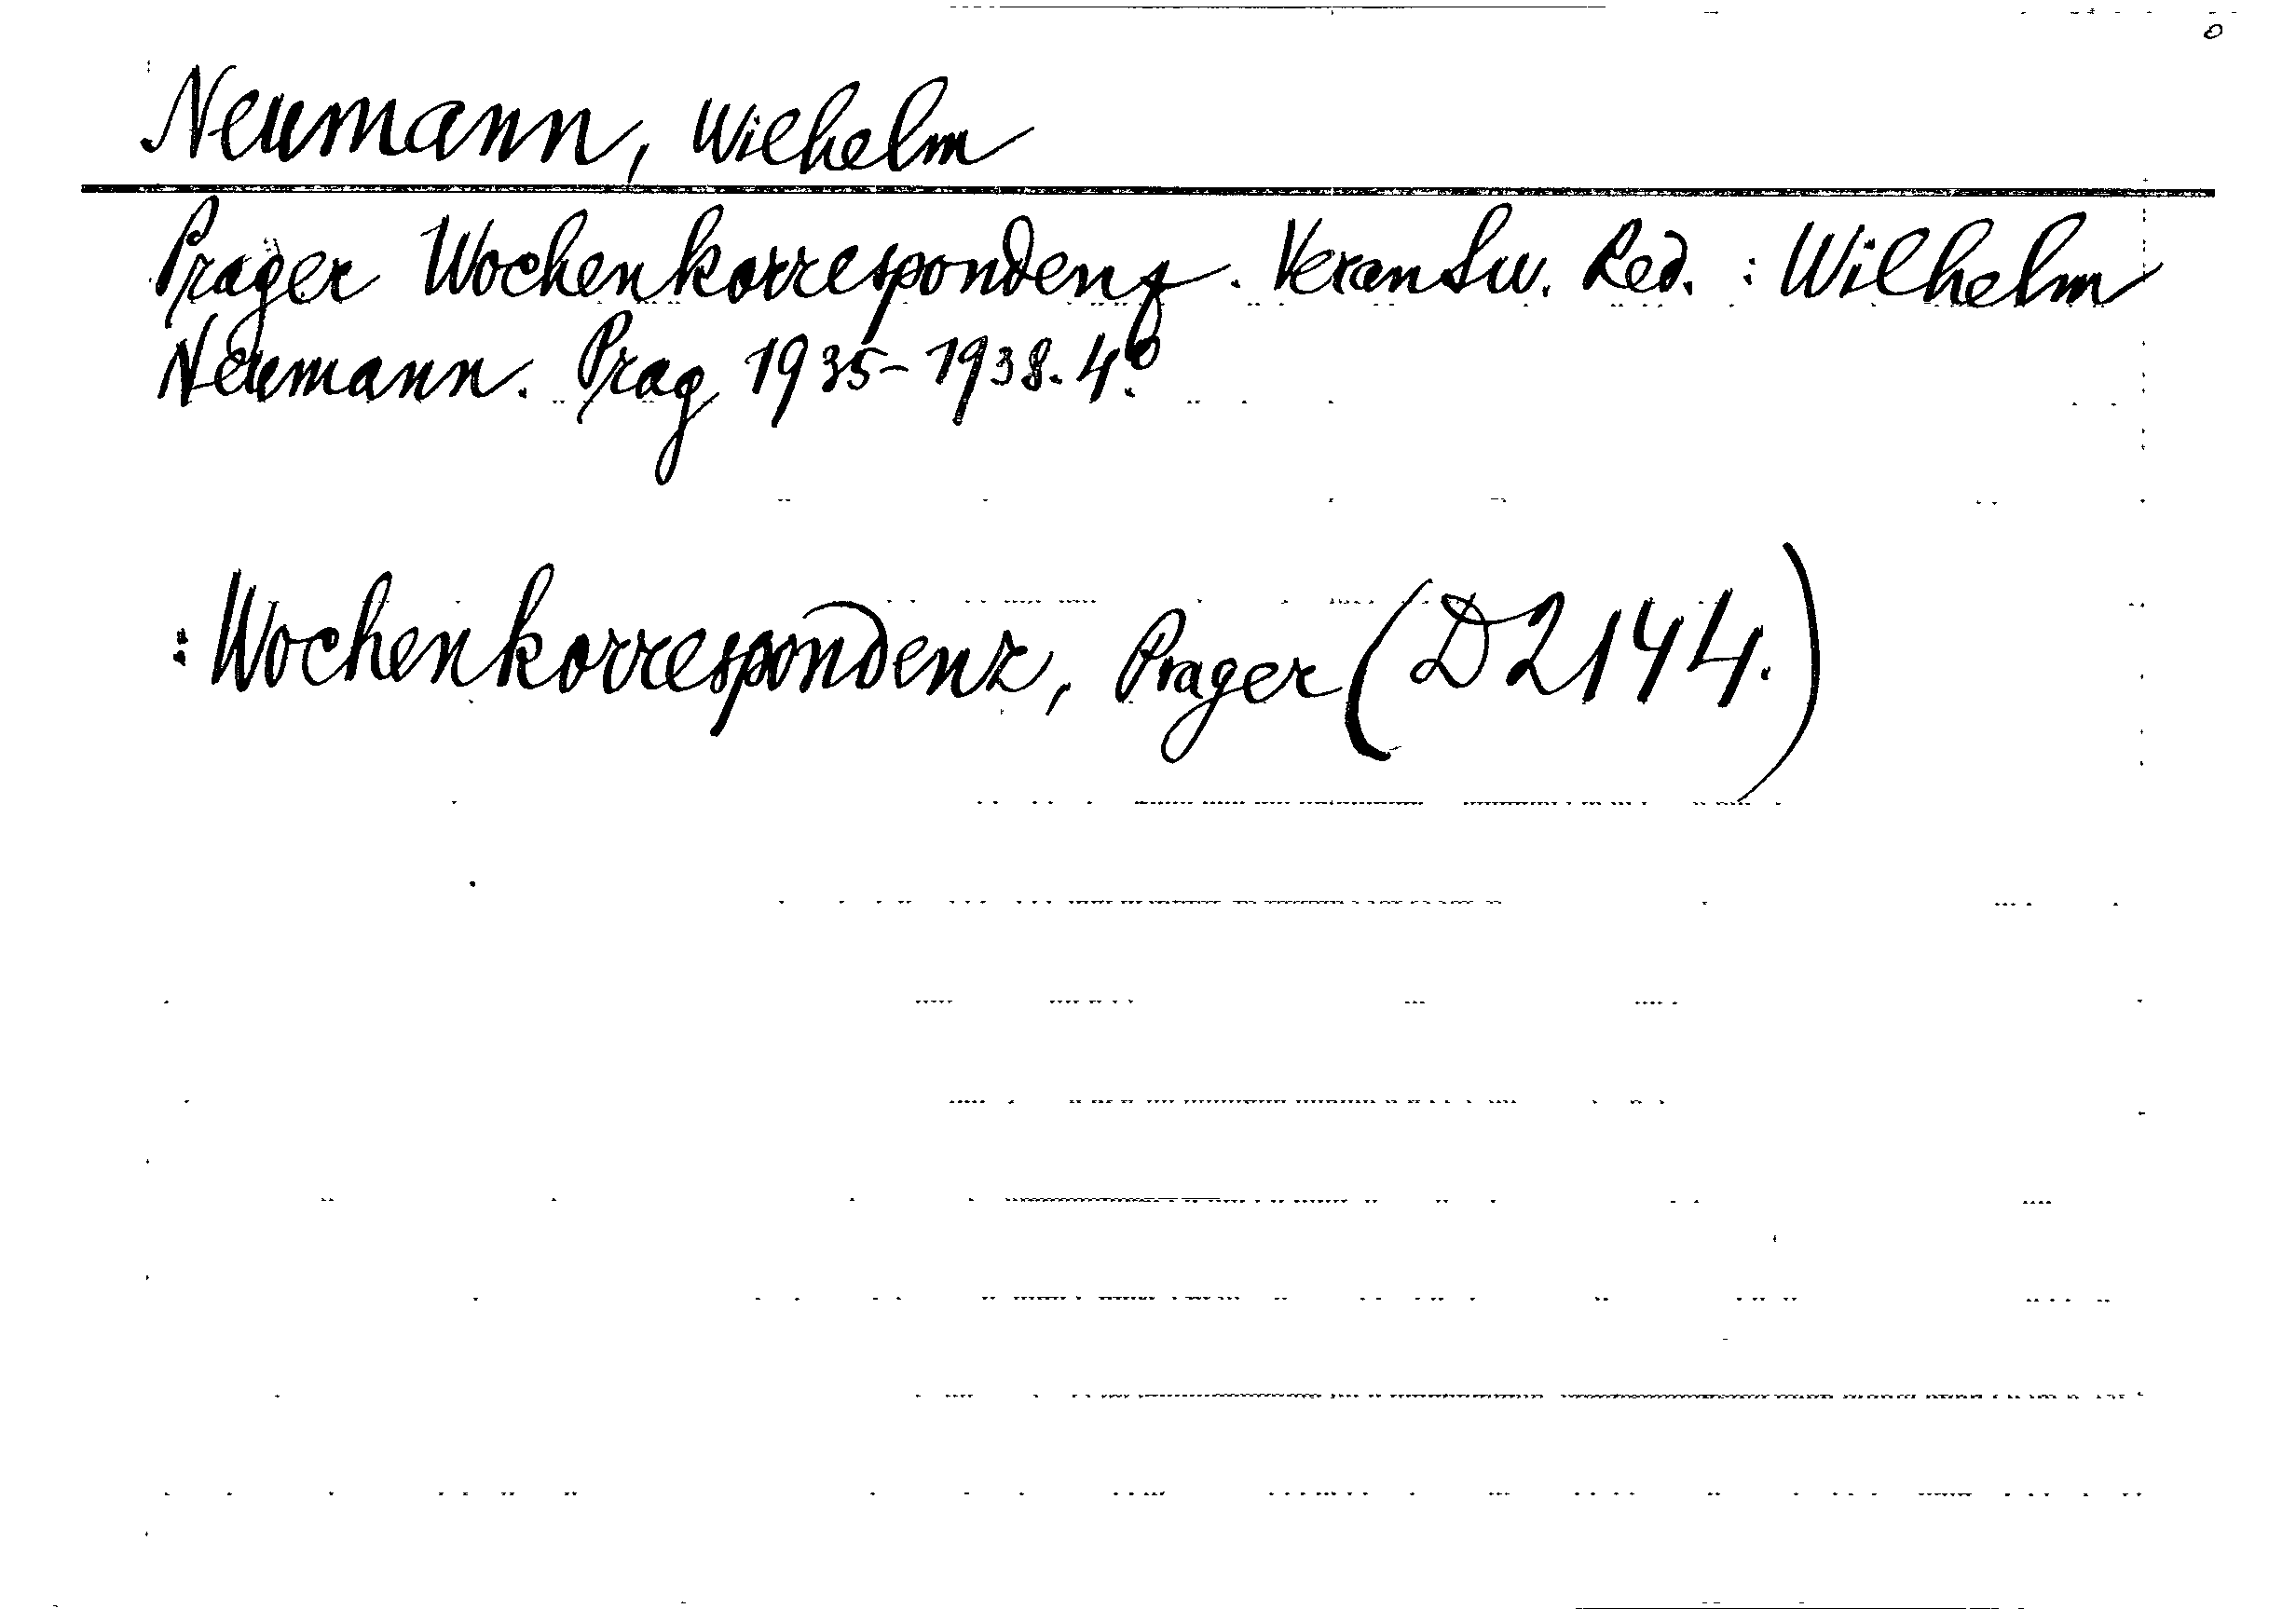 Neumann, Wilhelm
Prager Wochenkorrespondenz. Verantw. Red. : Wilhelm
Neumann. Prag 1935-1938. 4.º
: Wochenkorrespondenz, Prager (D2144.)